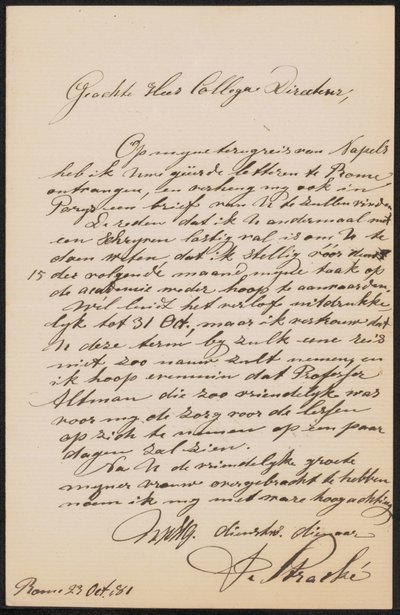 Geachte Heer Collega Directeur,
Op myne terugreis van Napels
heb ik Uwe geëerde letteren te Rome
ontvangen, en verheug my ook in
Parys een brief van U te zullen vinden
De reden dat ik U andermaal met
een schryven lastig val is om U te
doen weten dat ik stellig vóór den
15 der volgende maand myne taak op
de academie weder hoop te aanvaarden.
Wèl luidt het verlof uitdrukke
lyk tot 31 Oct., maar ik vertrouw dat
U deze term by zulk eene reis
niet zoo nauw zult nemen, en
ik hoop evenmin dat Professor
Altman die zoo vriendelyk was
voor my de zorg voor de lessen
op zich te nemen op een paar
dagen zal zien.
Na U de vriendelyke groete
myner vrouw overgebracht te hebben
noem ik my met ware hoogachting
dienstw. dienaar
Stracké
Rome 23 Oct. '81